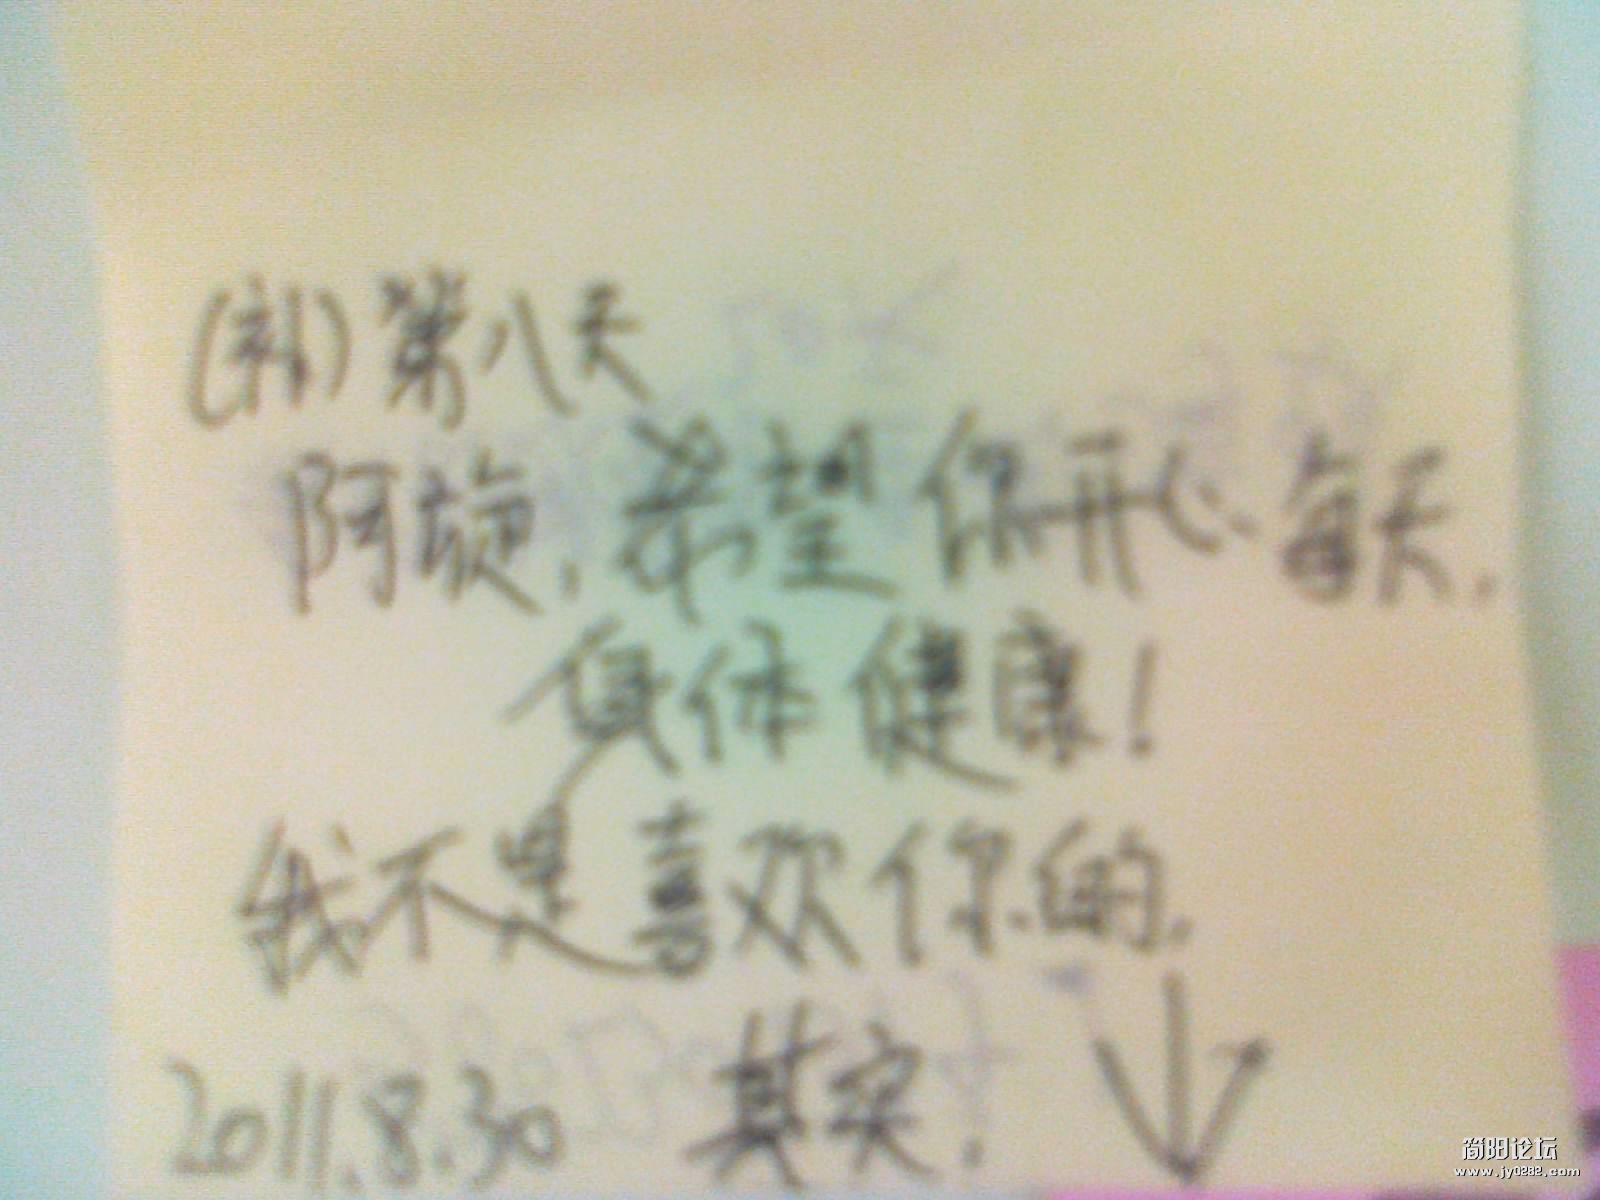 (补)第八天
阿旋,希望你开心每天,
身体健康!
我不是喜欢你的,
2011.8.30 其实,
简阳论坛
www.jy0282.com